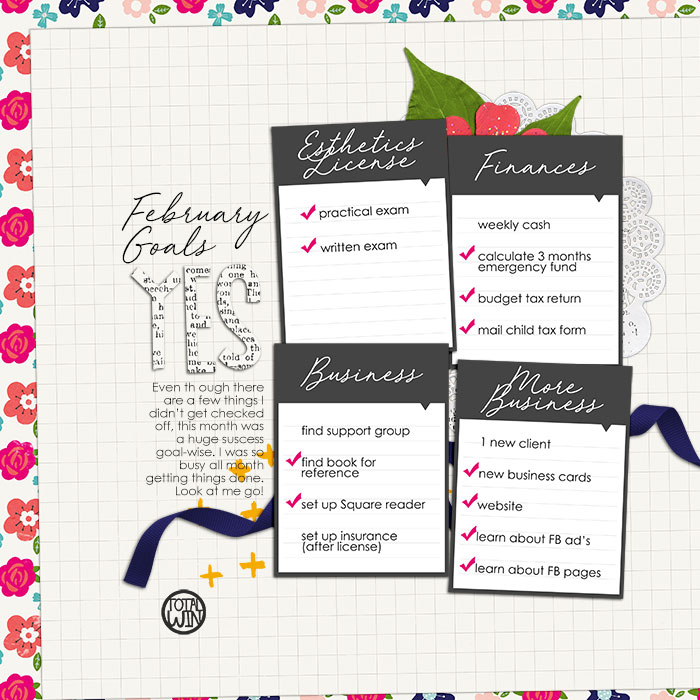 February
Goals
YES
Even th ough there
are a few things I
didn't get checked
off, this month was
a huge suscess
goal-wise. I was so
busy all month
getting things done.
Look at me go!
TOTAL
WIN
Esthetics
License
practical exam
written exam
Finances
weekly cash
calculate 3 months
emergency fund
budget tax return
mail child tax form
Business
find support group
find book for
reference
set up Square reader
set up insurance
(after license)
More
Business
1 new client
new business cards
website
learn about FB ad's
learn about FB pages